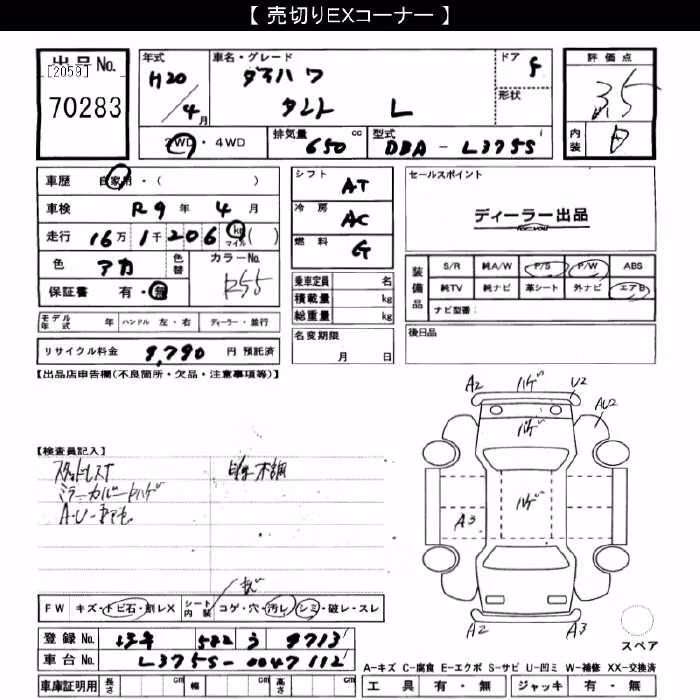 【 売切りEXコーナー 】
出品No.
[2059]
70283
年式 H20 / 4月
車名・グレード ダイハツ
タント L
ドア 5
形状
評価点 3.5
内装 D
2WD・4WD
排気量 650 cc
型式 DBA - L375S
車歴 自家用・( )
車検 R9年 4月
走行 16万 1千 206 km マイル ( )
色 アカ 色替 カラーNo. R55
保証書 有・無
モデル年式 年 ハンドル 左・右 ディーラー・並行
リサイクル料金 9,790 円 預託済
シフト AT
冷房 AC
燃料 G
乗車定員 名
積載量 kg
総重量 kg
名変期限
月 日
セールスポイント
ディーラー出品
装備品 S/R 純A/W P/S P/W ABS
純TV 純ナビ 革シート 外ナビ エアB
ナビ型番:
後日品
【出品店申告欄(不良箇所・欠品・注意事項等)】
【検査員記入】
ミラーカバーハゲ
A2 ハゲ U2
AU2
ハゲ
ハゲ
A3
A2 A3
スペア
FW キズ・トビ石・割レX シート内装 コゲ・穴・汚レ・シミ・破レ・スレ
登録No. 582 う 9713
車台No. L375S-0047112
車庫証明用 長さ cm 幅 cm 高さ cm
A-キズ C-腐食 E-エクボ S-サビ U-凹ミ W-補修 XX-交換済
工具 有・無 ジャッキ 有・無